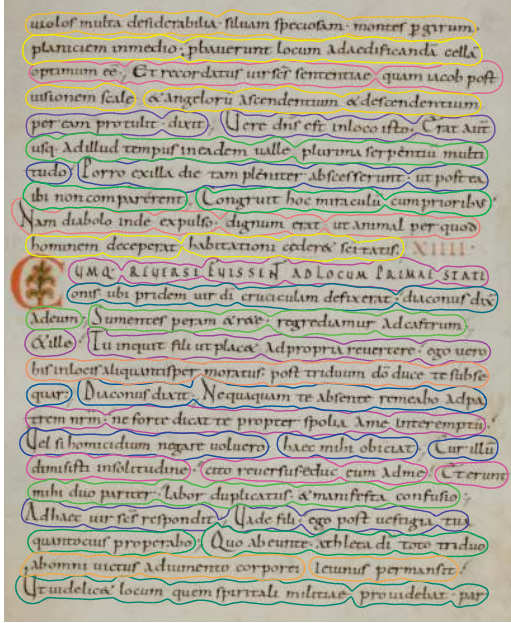 riuolos multa desiderabilia · siluam speciosam · montes p girum ·
planiciem inmedio · plauerunt locum adaedificandā cella
optimum eē ; Et recordatus uir scs sententiae quam iacob post
uisionem scale & angelorū ascendentium & descendentium
per eam protulit · dixit · Uere dns est inloco isto · Erat autē
usq· adillud tempus ineadem ualle plurima serpentiū multi
tudo · Porro exilla die tam pleniter abscesserunt · ut post ea
ibi non comparerent · Congruit hoc miraculū cum prioribus ·
Nam diabolo inde expulso · dignum erat ut animal per quod
hominem deceperat habitationi cederet scitatis · XIIII ·
CUMQ· REUERSI FUISSENT AD LOCUM PRIMAE STATI
onis · ubi pridem uir dī cruciculam defixerat · diaconus dix
ad eum · Sumentes peram & rete regrediamur ad castrum ·
& ille · Tu inquit fili ut placet ad propria reuertere · ego uero
his in locis aliquantisper moratus · post triduum dō duce te subse
quar · Diaconus dixit · Nequaquam te absente remeabo ad pa
trem nrm · ne forte dicat te propter spolia a me interemptū ·
Uel si homicidium negare uoluero haec mihi obiciat · Cur illū
dimisisti insolitudine · cito reuersus educ eum ad me · Et erunt
mihi duo pariter · labor duplicatus · & manifesta confusio ·
Ad haec uir scs respondit · Uade fili · ego post uestigia tua
quantocius properabo · Quo abeunte · athleta dī toto triduo
ab omni uictus adiumento corporei Ieiunus permansit ·
Ut uidelicet locum quem spiritali militiae prouidebat · par